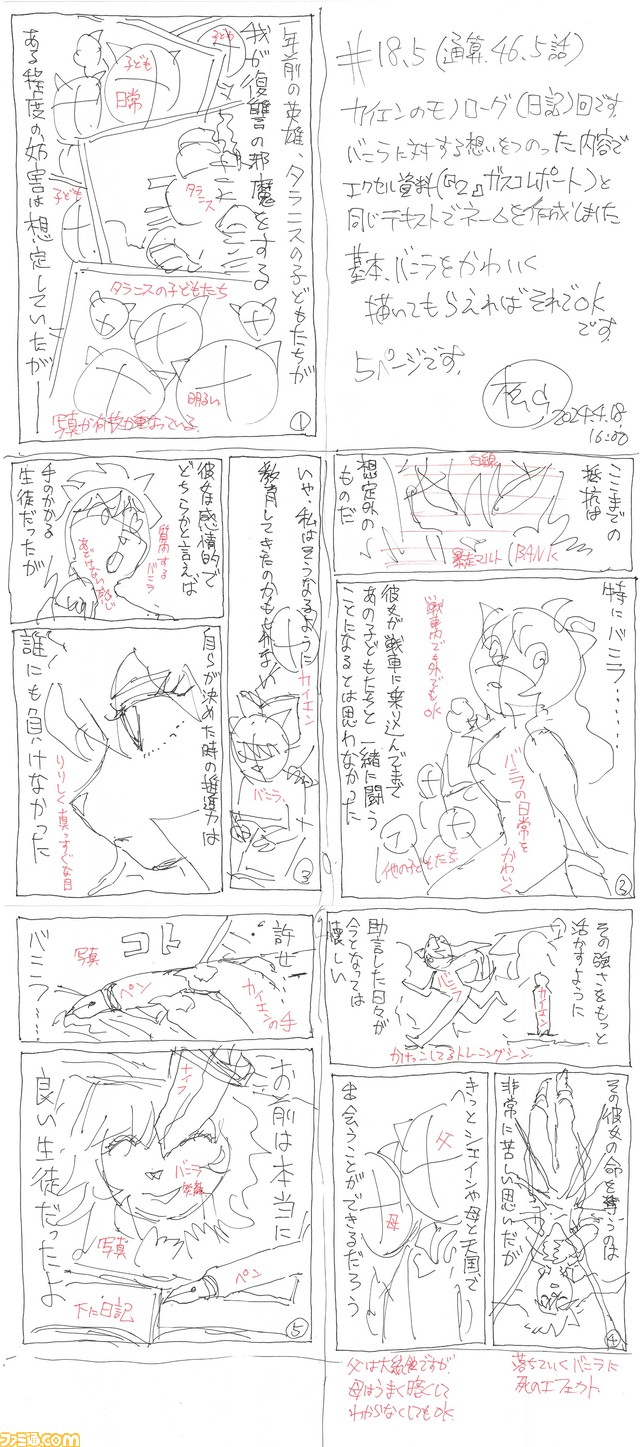 #18.5(通算.46.5話)
カイエンのモノローグ(日記)回です。
バニラに対する想いをつのった内容で
エクセル資料(『2』ガスコレポート)と
同じテキストでネームを作成しました
基本、バニラをかわいく
描いてもらえればそれでOK
です。
5ページです。
2024.4.18.
16:00
一年前の英雄、タラニスの子どもたちが
我が復讐の邪魔をする
ある程度の妨害は想定していたが
子ども
子ども
日常
子ども
タラニス
タラニスの子どもたち
明るい
写真が何枚か重なっている。
①
ここまでの
抵抗は
想定外の
ものだ
白線
暴走マルト(BANK
特にバニラ……
彼女が戦車に乗り込んでまで
あの子どもたちと一緒に闘う
ことになるとは思わなかった
戦車内でも外でもOK
バニラの日常を
かわいく
他の子どもたち
②
いや、私はそうなるように
教育してきたのかもしれない
カイエン
バニラ、
③
彼女は感情的で
どちらかと言えば
手のかかる
生徒だったが
質問する
バニラ
あどけない感じ
自らが決めた時の推進力は
誰にも負けなかった
りりしく真っすぐな目
その強さをもっと
活かすように
助言した日々が
今となっては
懐しい
バニラ
カイエン
かけっこしてるトレーニングシーン
その彼女の命を奪うのは
非常に苦しい思いだが
④
きっとシェインや母と天国で
出会うことができるだろう
父
母
落ちていくバニラに
死のエフェクト
父は大統領ですが、
母はうまく暗くして
わからなくしてもOK
許せ…
バニラ……
コト
写真
ペン
カイエンの手
お前は本当に
良い生徒だったよ
ナイフ
バニラ
笑顔
写真
ペン
下に日記
⑤
ファミ通.com